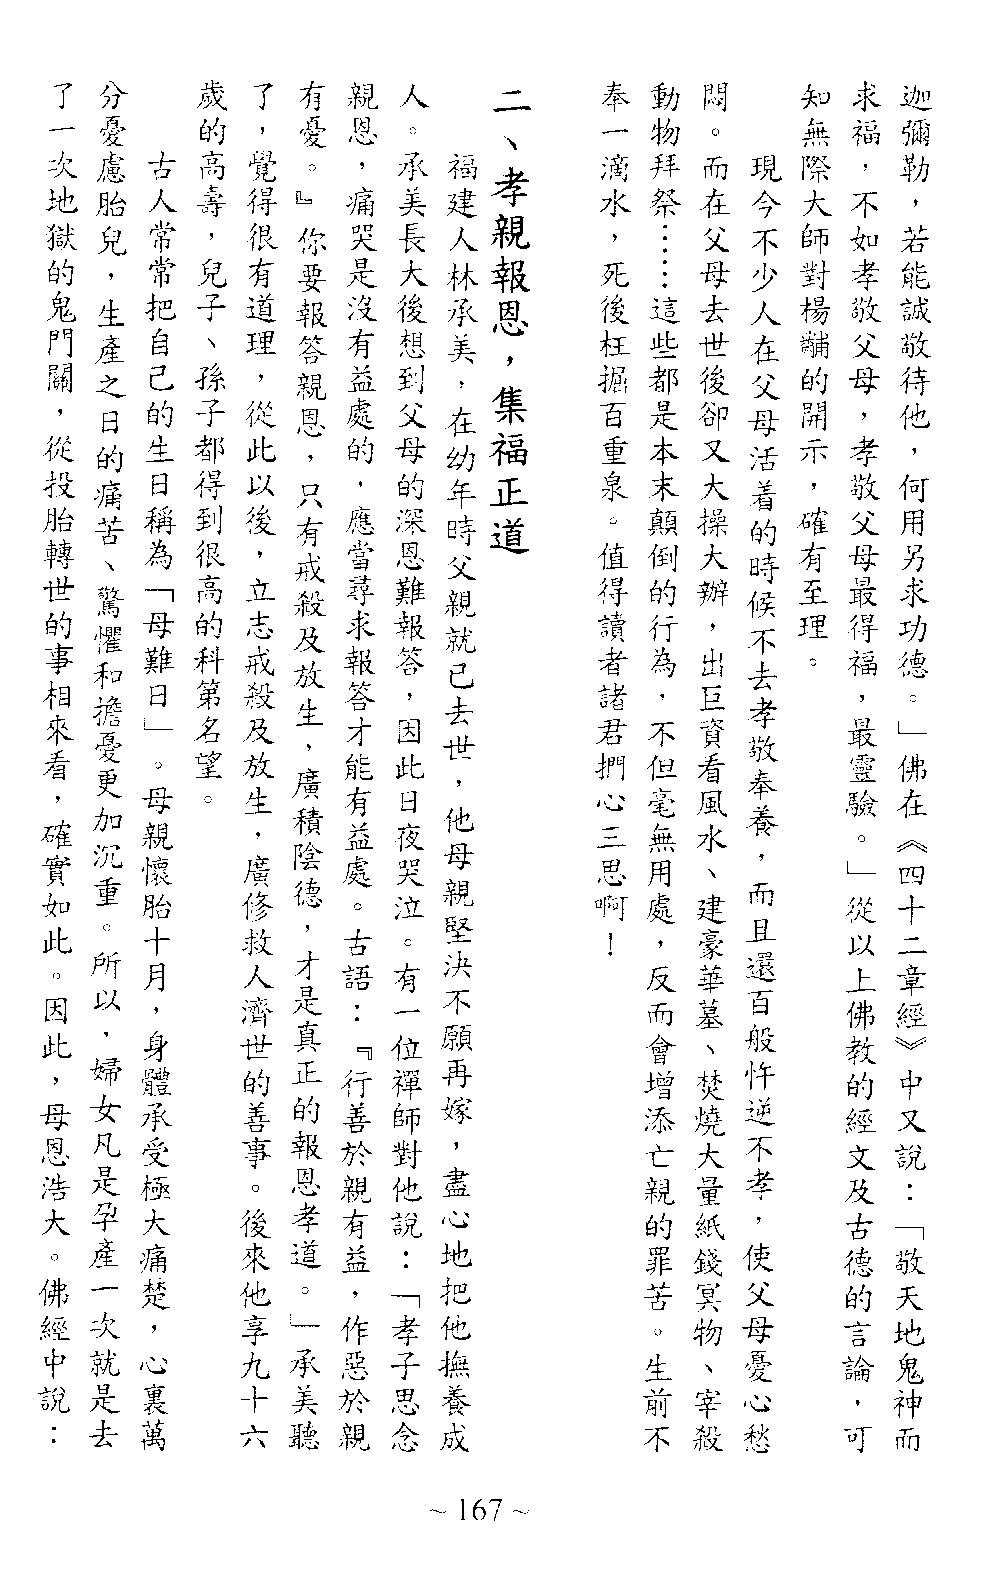 迦彌勒，若能誠敬待他，何用另求功德。」佛在《四十二章經》中又說：「敬天地鬼神而
求福，不如孝敬父母，孝敬父母最得福，最靈驗。」從以上佛教的經文及古德的言論，可
知無際大師對楊黼的開示，確有至理。
現今不少人在父母活着的時候不去孝敬奉養，而且還百般忤逆不孝，使父母憂心愁
悶。而在父母去世後卻又大操大辦，出巨資看風水、建豪華墓、焚燒大量紙錢冥物、宰殺
動物拜祭……這些都是本末顛倒的行為，不但毫無用處，反而會增添亡親的罪苦。生前不
奉一滴水，死後枉掘百重泉。值得讀者諸君捫心三思啊！
二、孝親報恩，集福正道
福建人林承美，在幼年時父親就已去世，他母親堅決不願再嫁，盡心地把他撫養成
人。承美長大後想到父母的深恩難報答，因此日夜哭泣。有一位禪師對他說：「孝子思念
親恩，痛哭是沒有益處的，應當尋求報答才能有益處。古語：『行善於親有益，作惡於親
有憂。』你要報答親恩，只有戒殺及放生，廣積陰德，才是真正的報恩孝道。」承美聽
了，覺得很有道理，從此以後，立志戒殺及放生，廣修救人濟世的善事。後來他享九十六
歲的高壽，兒子、孫子都得到很高的科第名望。
古人常常把自己的生日稱為「母難日」。母親懷胎十月，身體承受極大痛楚，心裏萬
分憂慮胎兒，生產之日的痛苦、驚懼和擔憂更加沉重。所以，婦女凡是孕產一次就是去
了一次地獄的鬼門關，從投胎轉世的事相來看，確實如此。因此，母恩浩大。佛經中說：
~167~